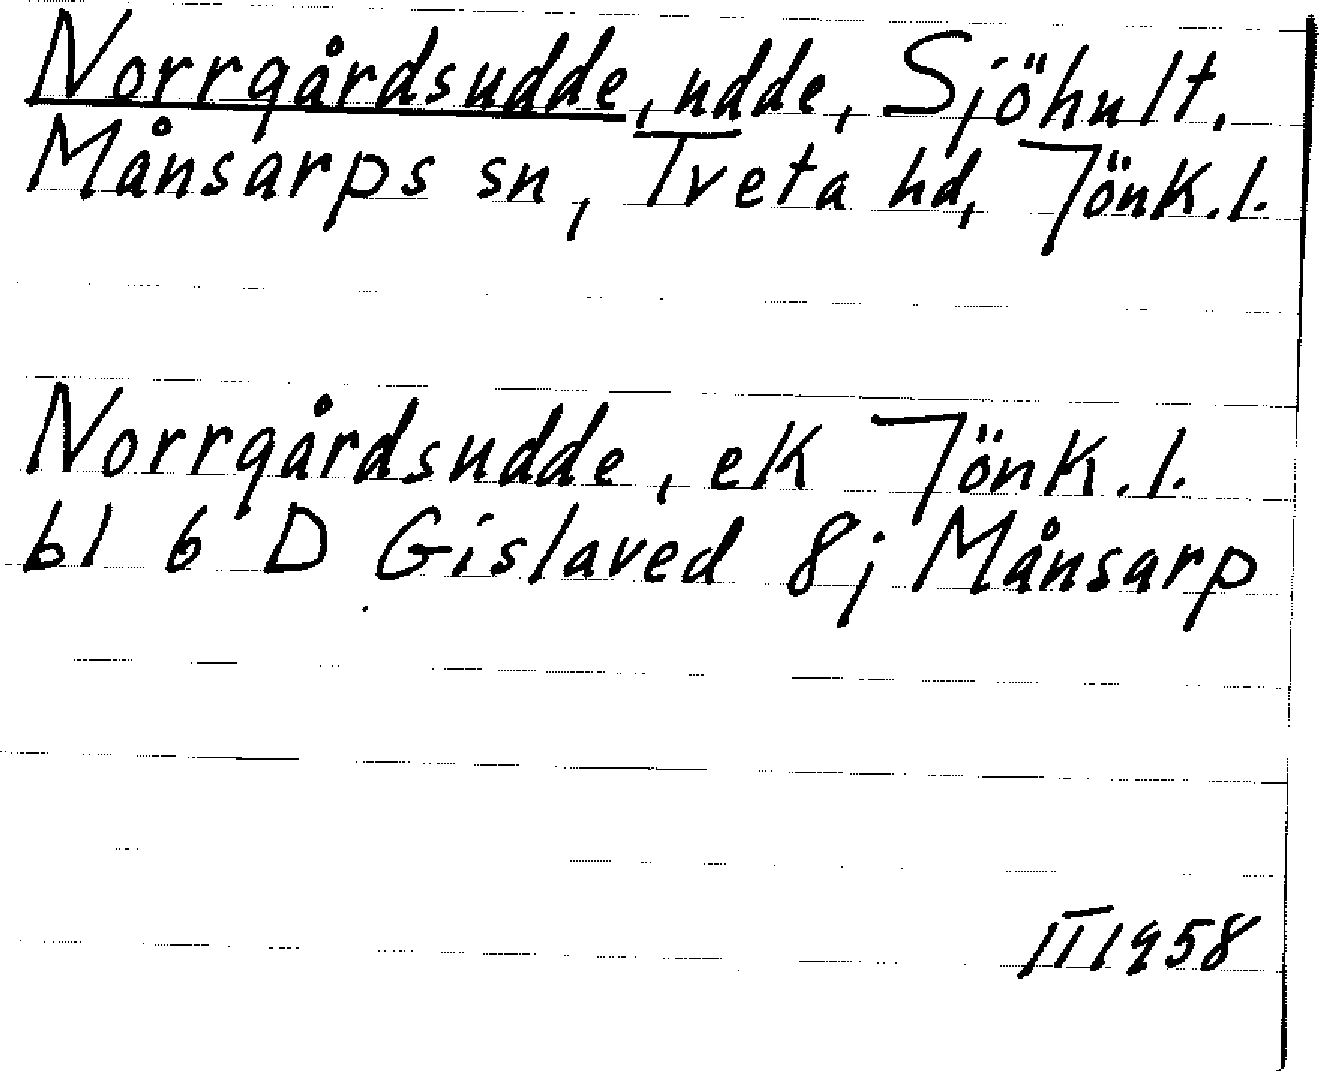 Norrgårdsudde, udde, Sjöhult,
Månsarps sn, Tveta hd, Jönk.l.
Norrgårdsudde, ek Jönk.l.
bl 6 D Gislaved 8j Månsarp
II 1958